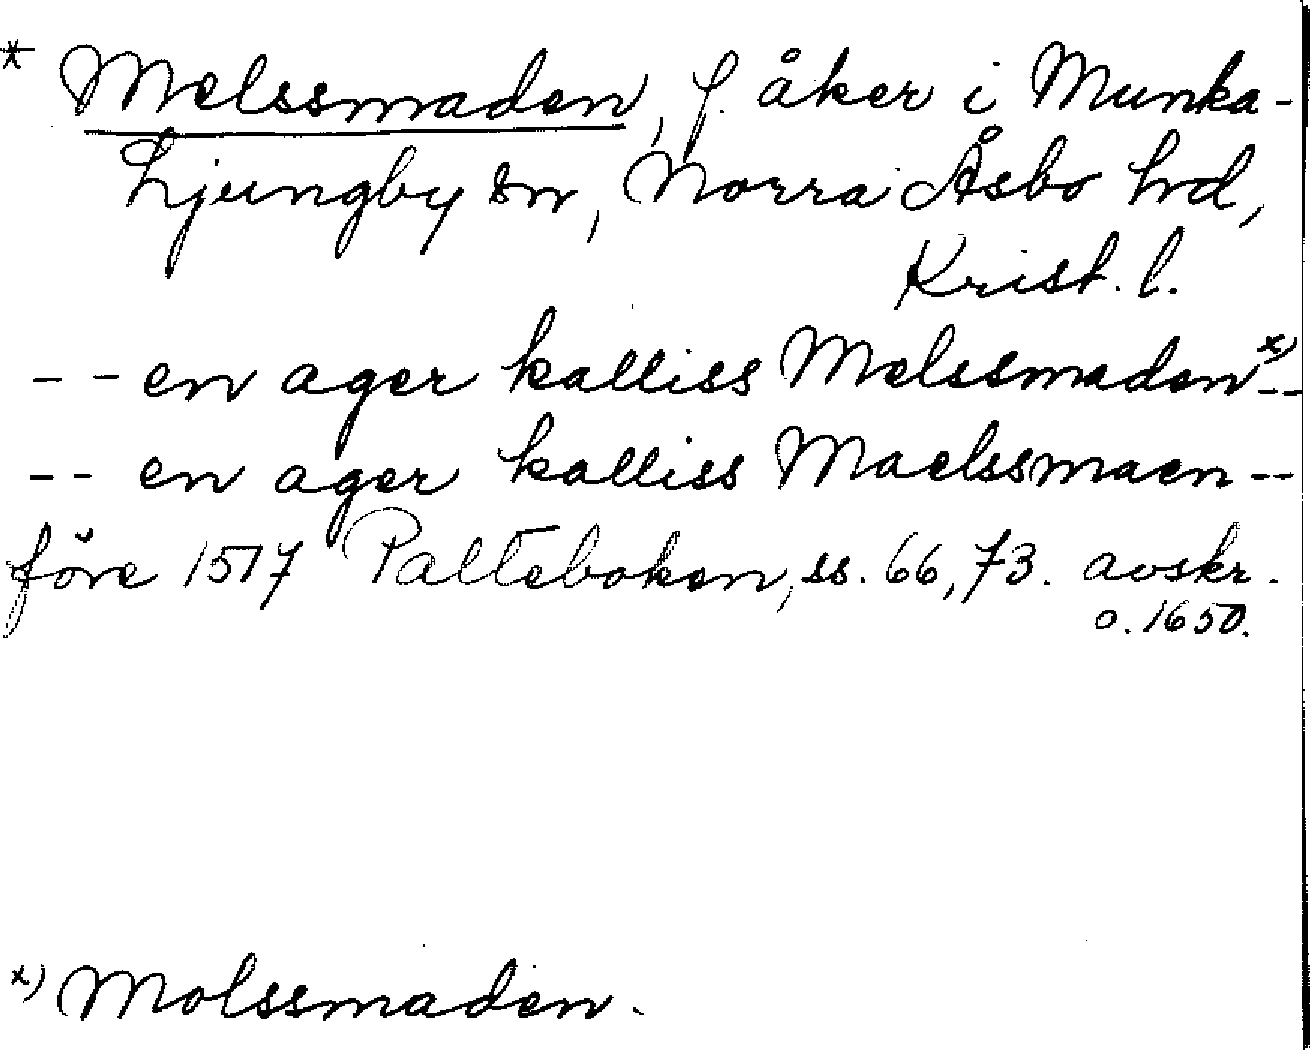 * Melssmaden, f. åker i Munka-
Ljungby sn, Norra Åsbo hd,
Krist. l.
-- en ager kalliss Melssmaden x) --
-- en ager kalliss Maelssmaen --
före 1517 Palteboken, ss. 66, 73. avskr.
o. 1650.
x) Molssmaden.